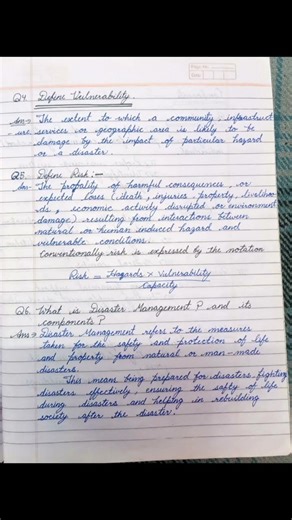 Q4. Define Vulnerability.
Ans- "The extent to which a community, infrastruct
-ure, services or geographic area is likely to be
damage by the impact of particular hazard
or a disaster.
Q5. Define Risk:-
Ans- "The propality of harmful consequences, or
expected loses (death, injuries, property, livelihoo
ds, economic activity disrupted or environment
damage) resulting from interactions between
natural or human induced hazard and
vulnerable conditions.
Conventionally risk is expressed by the notation
Risk = Hazards × Vulnerability
Capacity
Q6. What is Disaster Management? and its
components?
Ans⇒ Disaster Management refers to the measures
taken for the safety and protection of life
and property from natural or man-made
disasters.
This means being prepared for disasters, fighting
disasters effectively, ensuring the safty of life
during disasters and helping in rebuilding
society after the disaster.